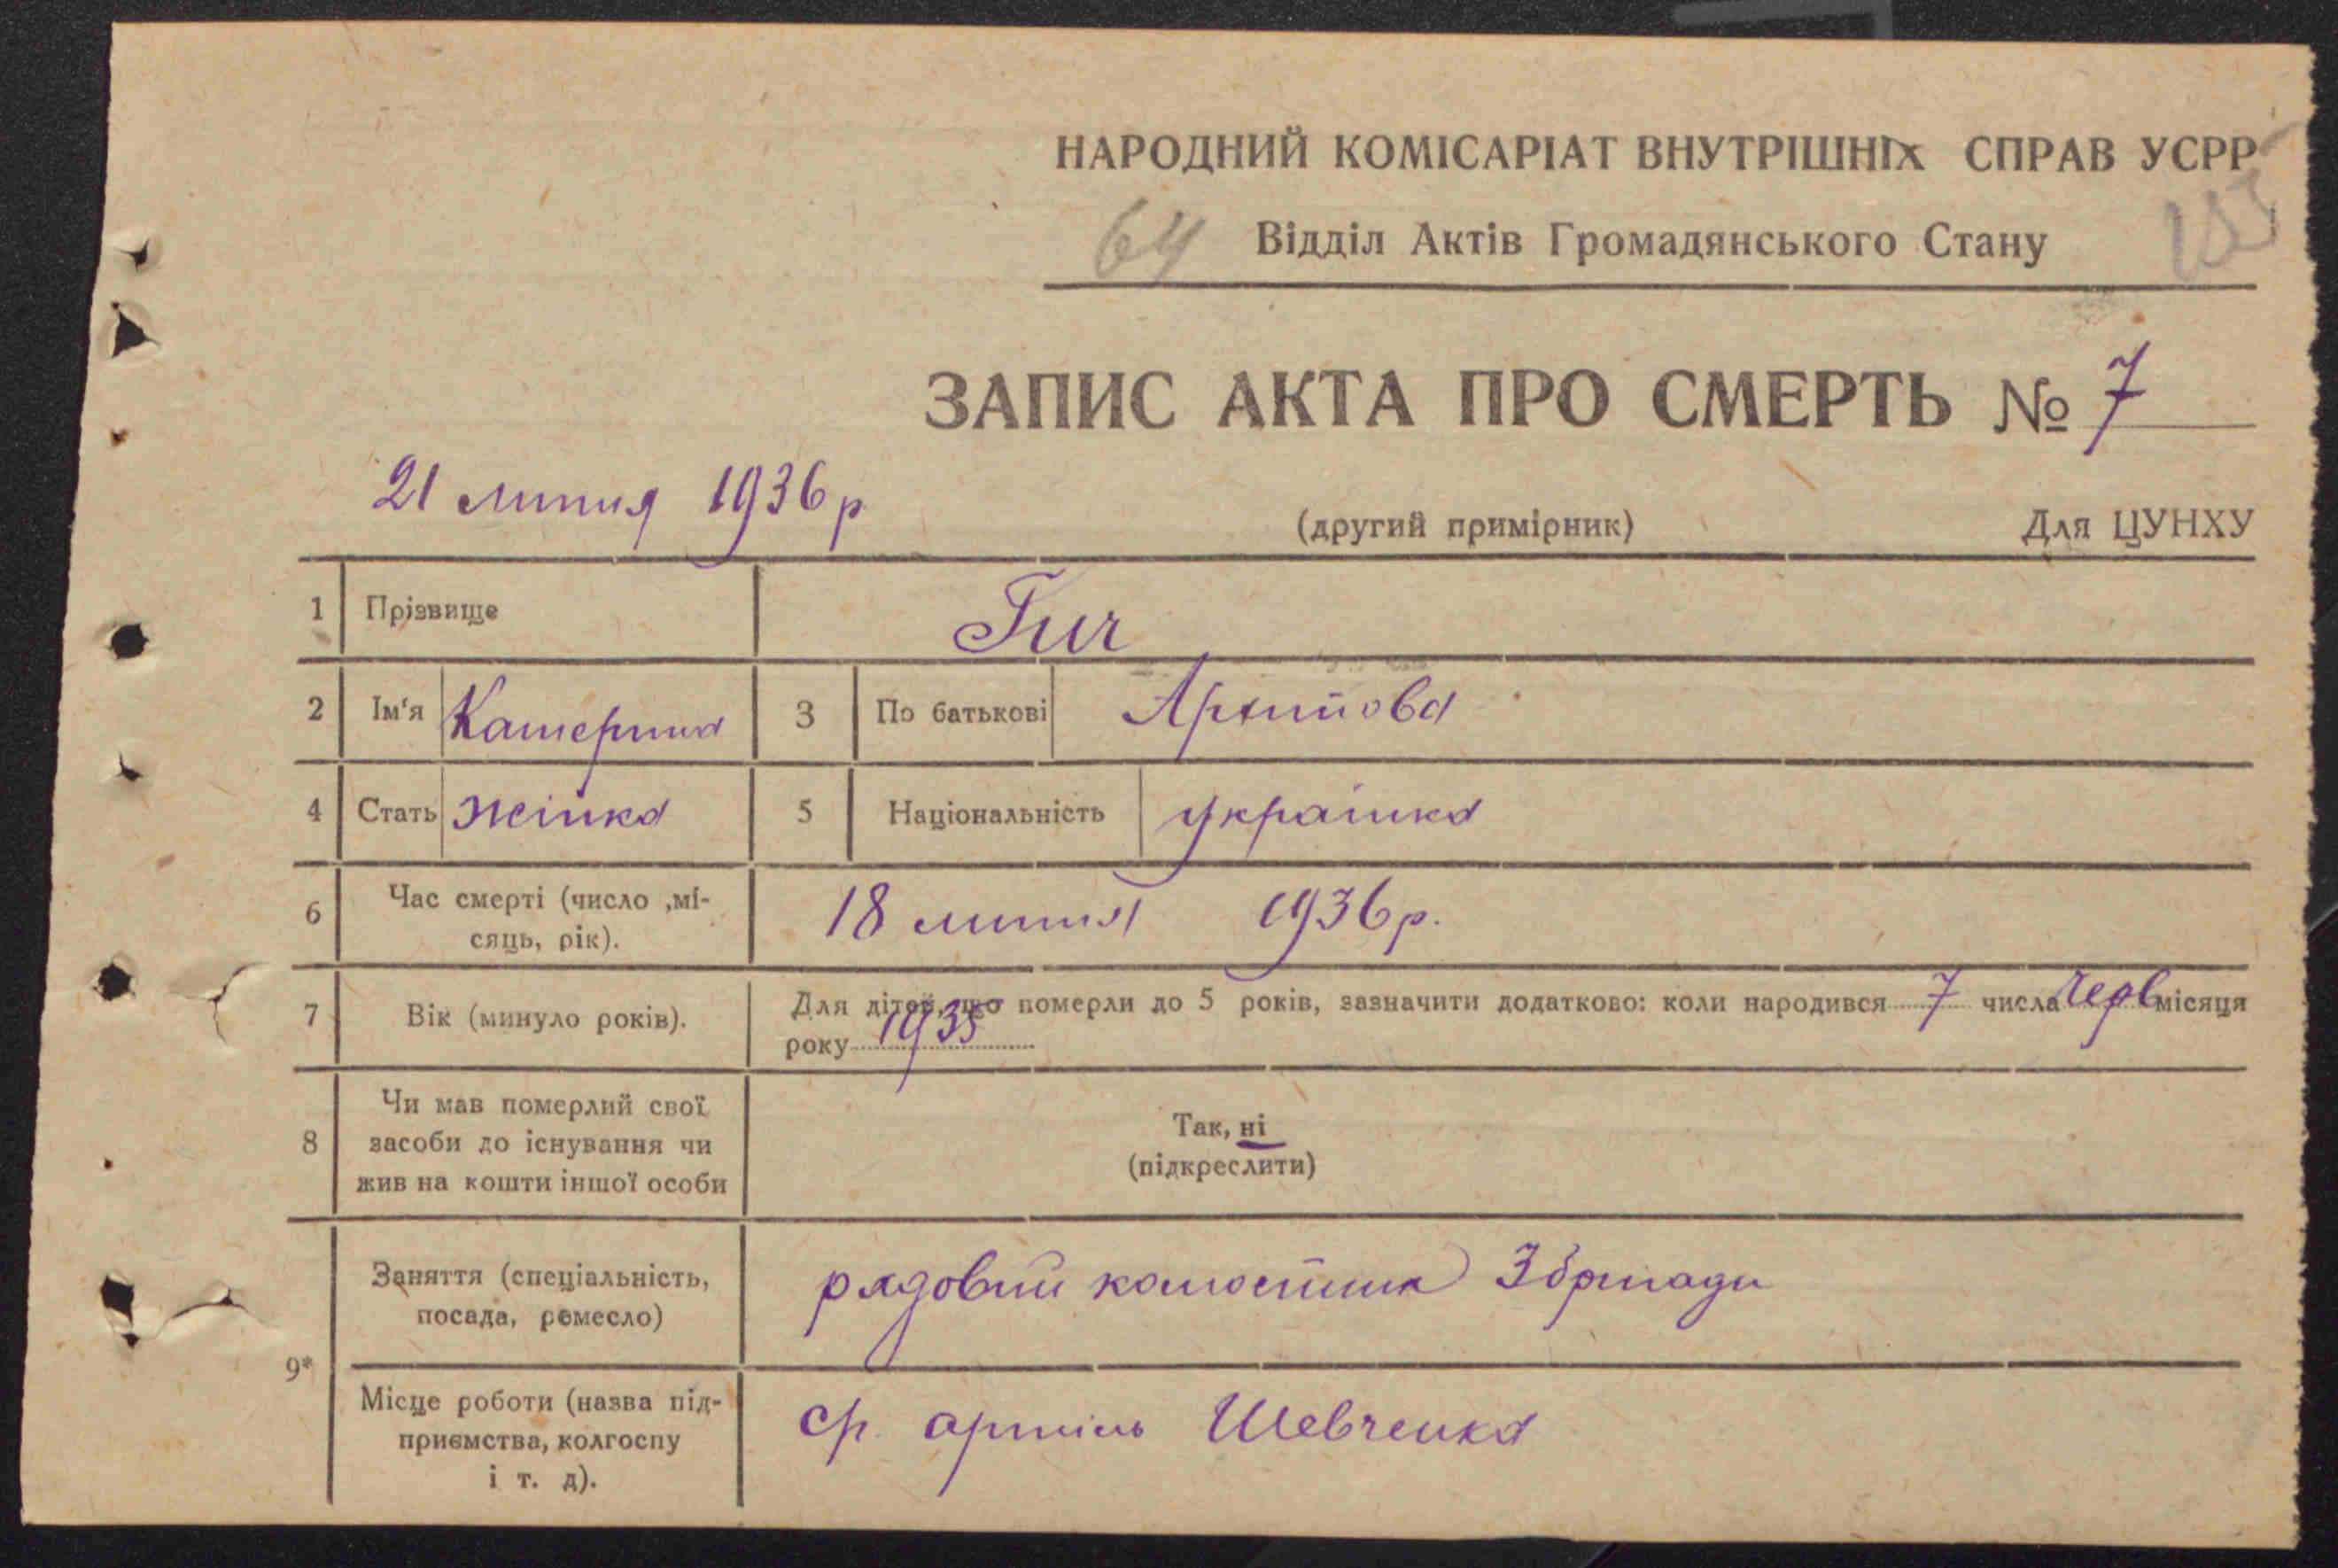 НАРОДНИЙ КОМІСАРІАТ ВНУТРІШНІХ СПРАВ УСРР
64 Відділ Актів Громадянського Стану
ЗАПИС АКТА ПРО СМЕРТЬ № 7
21 липня 1936 р
(другий примірник) Для ЦУНХУ
1 Прізвище Гич
2 Ім'я Катерина 3 По батькові Архипова
4 Стать жінка 5 Національність українка
6 Час смерті (число ,мі-
сяць, рік). 18 липня 1936 р.
7 Вік (минуло років). Для дітей, що померли до 5 років, зазначити додатково: коли народився 7 числа черв місяця
року 1935
8 Чи мав померлий свої
засоби до існування чи
жив на кошти іншої особи
Так, ні
(підкреслити)
9*
Заняття (спеціальність,
посада, ремесло)
рядовий колгоспник 3 бригади
Місце роботи (назва під-
приємства, колгоспу
і т. д).
ср. артіль Шевченка